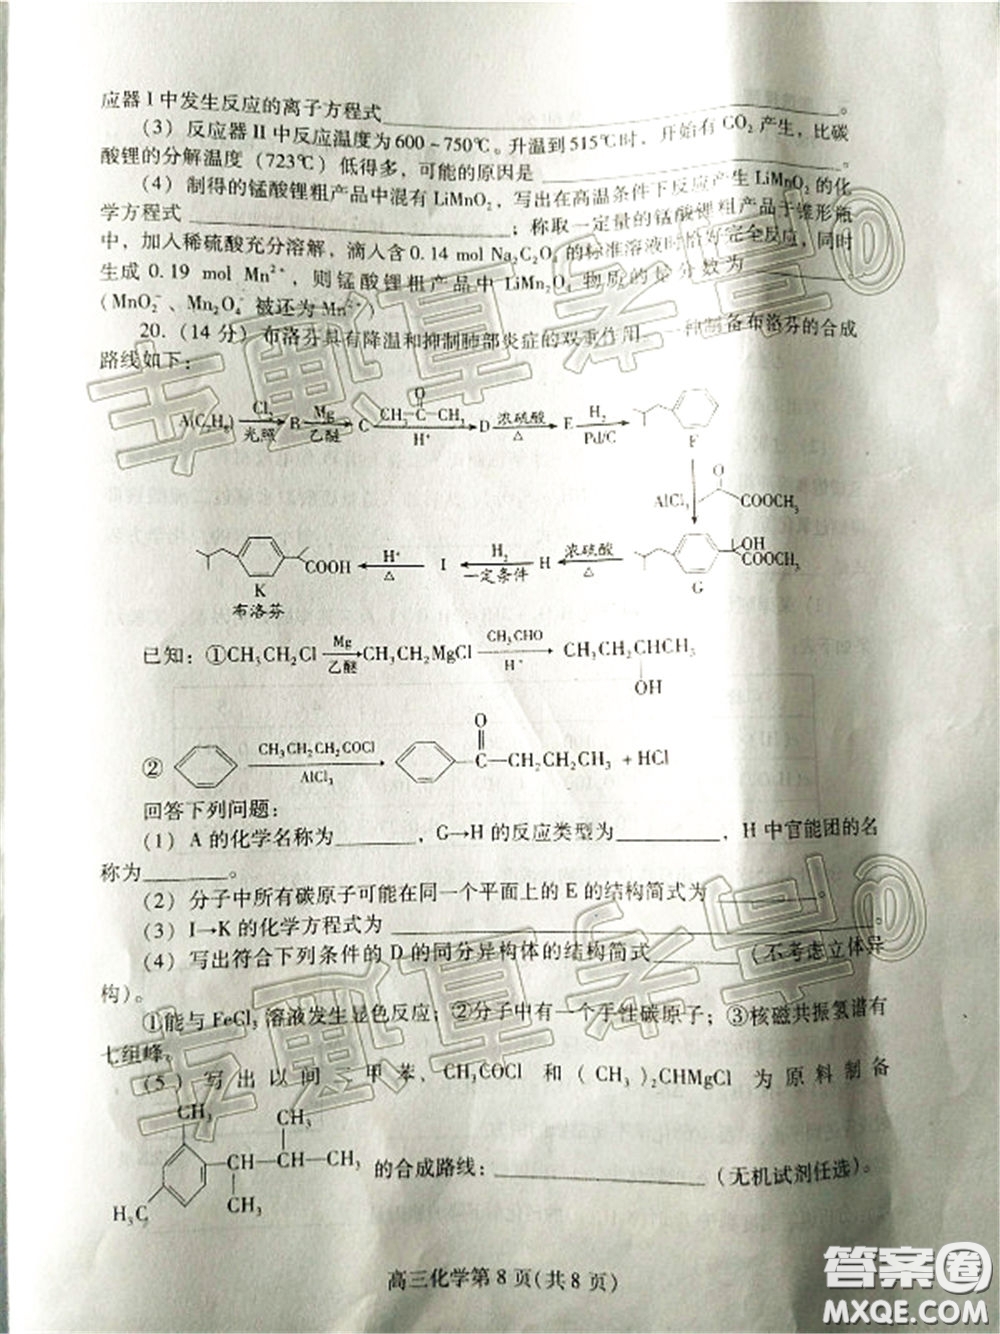 应器I中发生反应的离子方程式________。
(3) 反应器II中反应温度为600~750℃。升温到515℃时，开始有CO₂产生，比碳
酸锂的分解温度（723℃）低得多，可能的原因是________。
(4) 制得的锰酸锂粗产品中混有LiMnO₂，写出在高温条件下反应产生LiMnO₂的化
学方程式________；称取一定量的锰酸锂粗产品于锥形瓶
中，加入稀硫酸充分溶解，滴入含0.14 mol Na₂C₂O₄的标准溶液时恰好完全反应，同时
生成0.19 mol Mn²⁺，则锰酸锂粗产品中LiMn₂O₄物质的量分数为________
(MnO₂⁻、Mn₂O₄⁻被还为Mn²⁺)
20.（14分）布洛芬具有降温和抑制肺部炎症的双重作用，一种制备布洛芬的合成
路线如下：
A(C₇H₈) Cl₂ 光照 B Mg 乙醚 C CH₃ C CH₃ O H⁺ D 浓硫酸 △ E H₂ Pd/C F
AlCl₃ O COOCH₃
K COOH 布洛芬 H⁺ △ I H₂ 一定条件 H 浓硫酸 △ G OH COOCH₃
已知：①CH₃CH₂Cl Mg 乙醚 CH₃CH₂MgCl CH₃CHO H⁺ CH₃CH₂CHCH₃ OH
② CH₃CH₂CH₂COCl AlCl₃ O C—CH₂CH₂CH₃ + HCl
回答下列问题：
(1) A的化学名称为________，G→H的反应类型为________，H中官能团的名
称为________。
(2) 分子中所有碳原子可能在同一个平面上的E的结构简式为________。
(3) I→K的化学方程式为________.
(4) 写出符合下列条件的D的同分异构体的结构简式________（不考虑立体异
构）。
①能与FeCl₃溶液发生显色反应；②分子中有一个手性碳原子；③核磁共振氢谱有
七组峰。
(5) 写出以间二甲苯、CH₃COCl和(CH₃)₂CHMgCl为原料制备
CH₃ CH₃
CH—CH—CH₃ 的合成路线：________（无机试剂任选）。
H₃C CH₃
高三化学第8页(共8页)
答案圈
MXQE.COM